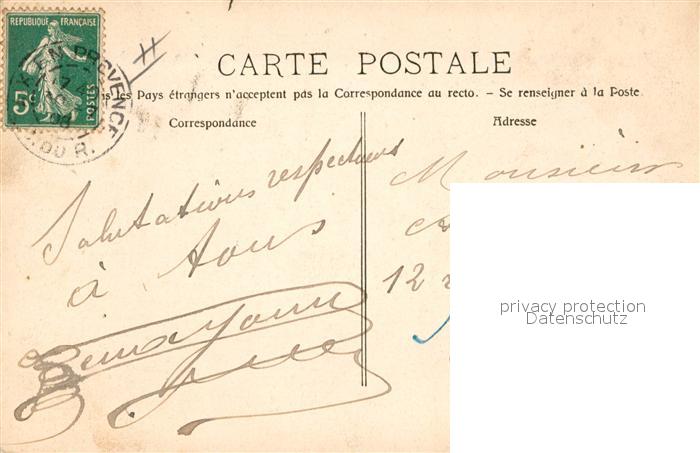 REPUBLIQUE FRANÇAISE
5c
POSTES
PROVENCE
DU R.
CARTE POSTALE
les Pays étrangers n'acceptent pas la Correspondance au recto. - Se renseigner à la Poste.
Correspondance
Adresse
Salutations respectueuses
à tous
Monsieur
12
privacy protection
Datenschutz